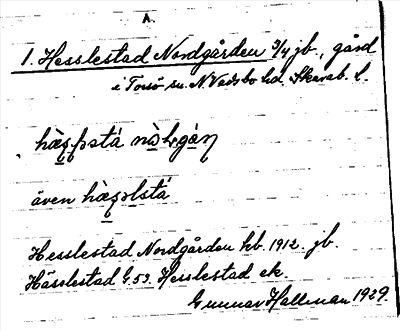 A.
1. Hesslestad Nordgården 3/4 jb., gård
i Torsö sn. N. Vadsbo hd. Skarab. l.
hàsp̣stá nòḷgàṇ
även hàspḷstá
Hesslestad Nordgården kb. 1912. jb.
Hässlestad G.53. Hesslestad ek.
Gunnar Hallman 1929.